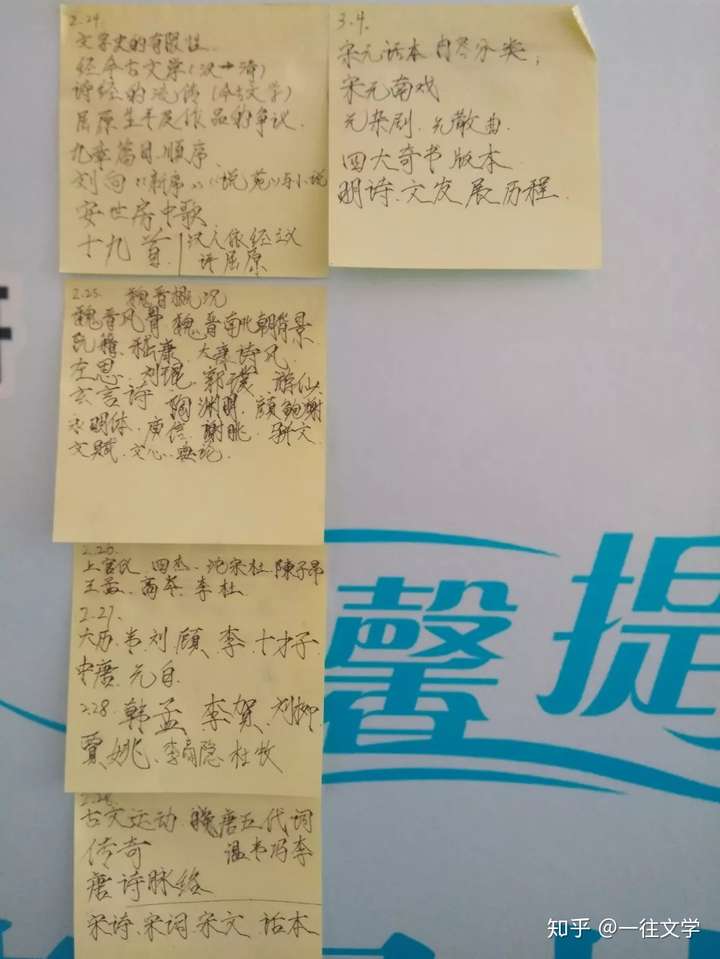 2.24.
文学史的有限性.
经今古文学(汉→清)
诗经的流传(今古文学)
屈原生平及作品的争议.
九章篇目.顺序.
刘向《新序》《说苑》与小说
安世房中歌
十九首
汉人依经立议
评屈原
2.25. 魏晋概况
魏晋风骨 魏晋南北朝背景
阮籍.嵇康. 太康诗风
左思. 刘琨. 郭璞. 游仙
玄言诗 陶渊明. 颜鲍谢
永明体. 庾信. 谢朓. 骈文
文赋. 文心.
2.26.
上官氏 四杰. 沈宋杜.陳子昂
王孟. 高岑. 李杜.
2.27.
大历.韦刘 顾 李.十才子.
中唐.元白.
2.28. 韩孟.李贺.刘柳
賈姚.李商隐.杜牧
古文运动 晚唐五代词
传奇 温韦冯李
唐诗脉络
宋诗.宋词宋文 话本
3.4.
宋元话本 内容分类;
宋元南戏
元杂剧.元散曲.
四大奇书 版本
明诗.文发展历程.
馨 提
知乎 @一往文学